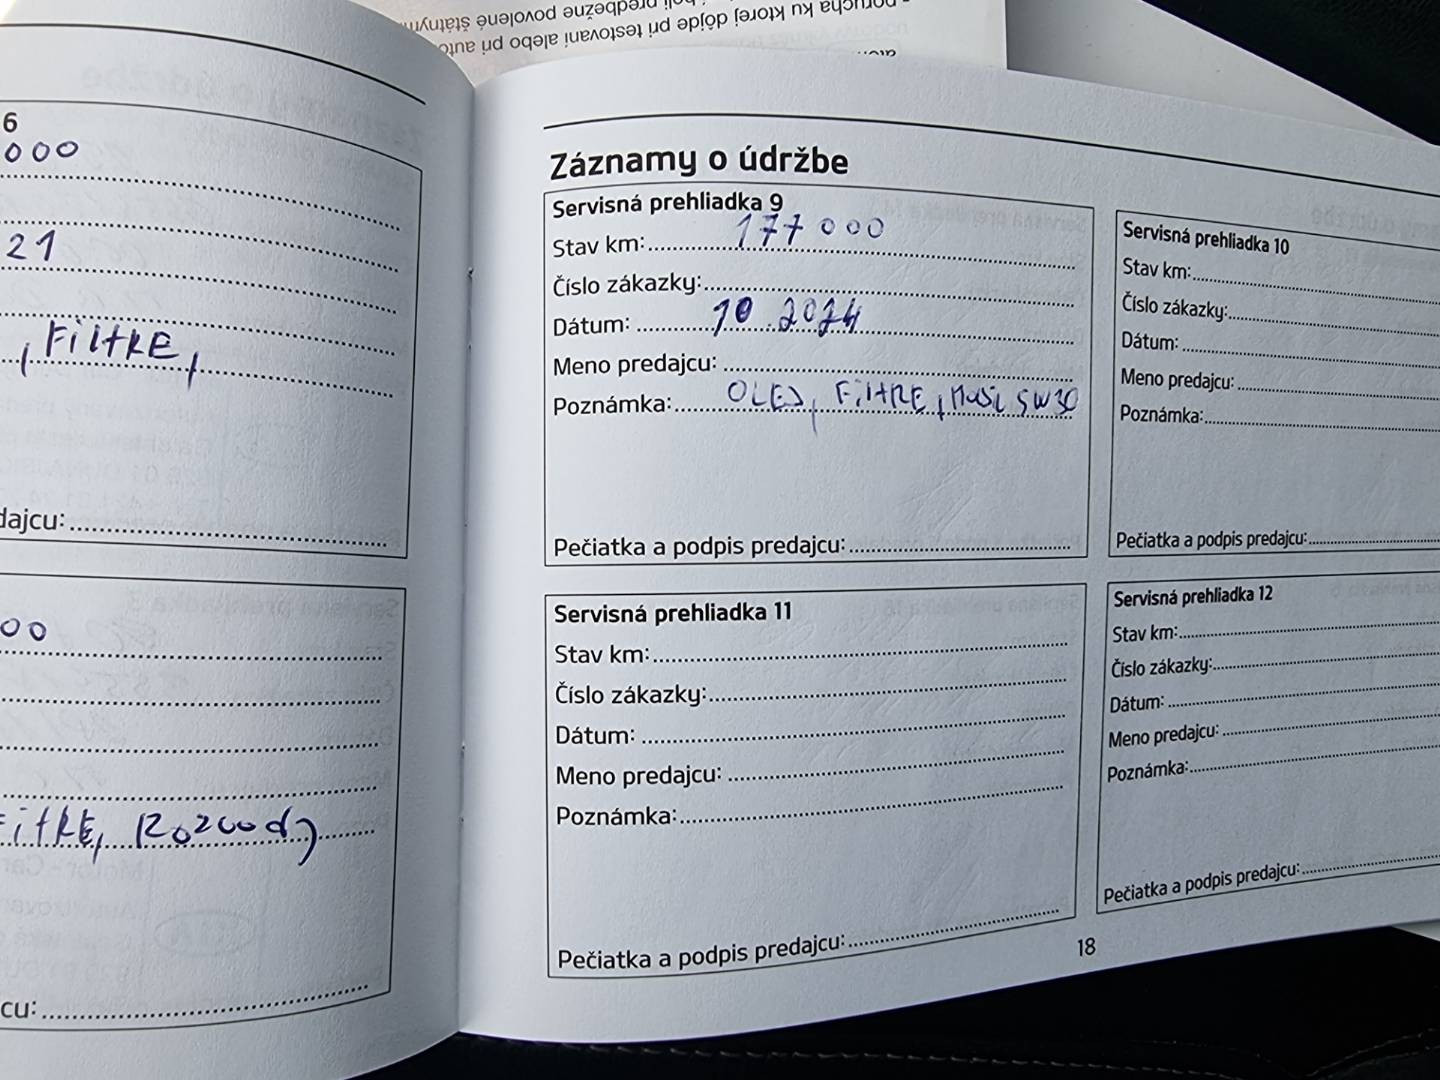 6
000
21
, FiltRE,
dajcu:
00
FiltRE, Rozvody
cu:
Záznamy o údržbe
Servisná prehliadka 9
Stav km: 177 000
Číslo zákazky:
Dátum: 10 2024
Meno predajcu:
Poznámka: OLEJ, FiltRE, MOBIL 5W30
Pečiatka a podpis predajcu:
Servisná prehliadka 10
Stav km:
Číslo zákazky:
Dátum:
Meno predajcu:
Poznámka:
Pečiatka a podpis predajcu:
Servisná prehliadka 11
Stav km:
Číslo zákazky:
Dátum:
Meno predajcu:
Poznámka:
Pečiatka a podpis predajcu:
Servisná prehliadka 12
Stav km:
Číslo zákazky:
Dátum:
Meno predajcu:
Poznámka:
Pečiatka a podpis predajcu:
18
porucha ku ktorej dôjde pri testovaní alebo pri
predbežne povolené štátnym